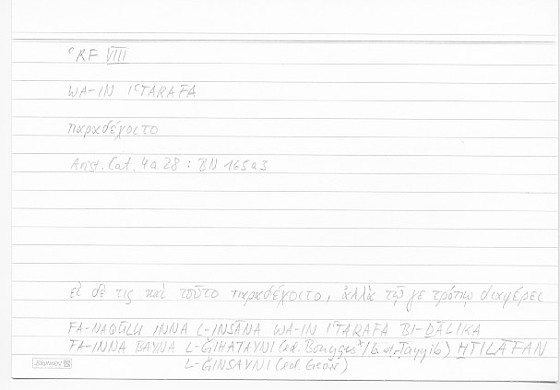 ʿRF VIII
WA-IN IʿTARAFA
παραδέχοιτο
Arist. Cat. 4a28 : BN 165a3
εἰ δέ τις καὶ τοῦτο παραδέχοιτο, ἀλλὰ τῷ γε τρόπῳ διαφέρει
FA-NAQŪLU INNA L-INSĀNA WA-IN IʿTARAFA BI-ḎĀLIKA
FA-INNA BAYNA L-ǦIHATAYNI (ed. Bouyges / b. aṭ-Ṭayyib) ḪTILĀFAN
L-ǦINSAYNI (ed Geor)
BRUNNEN